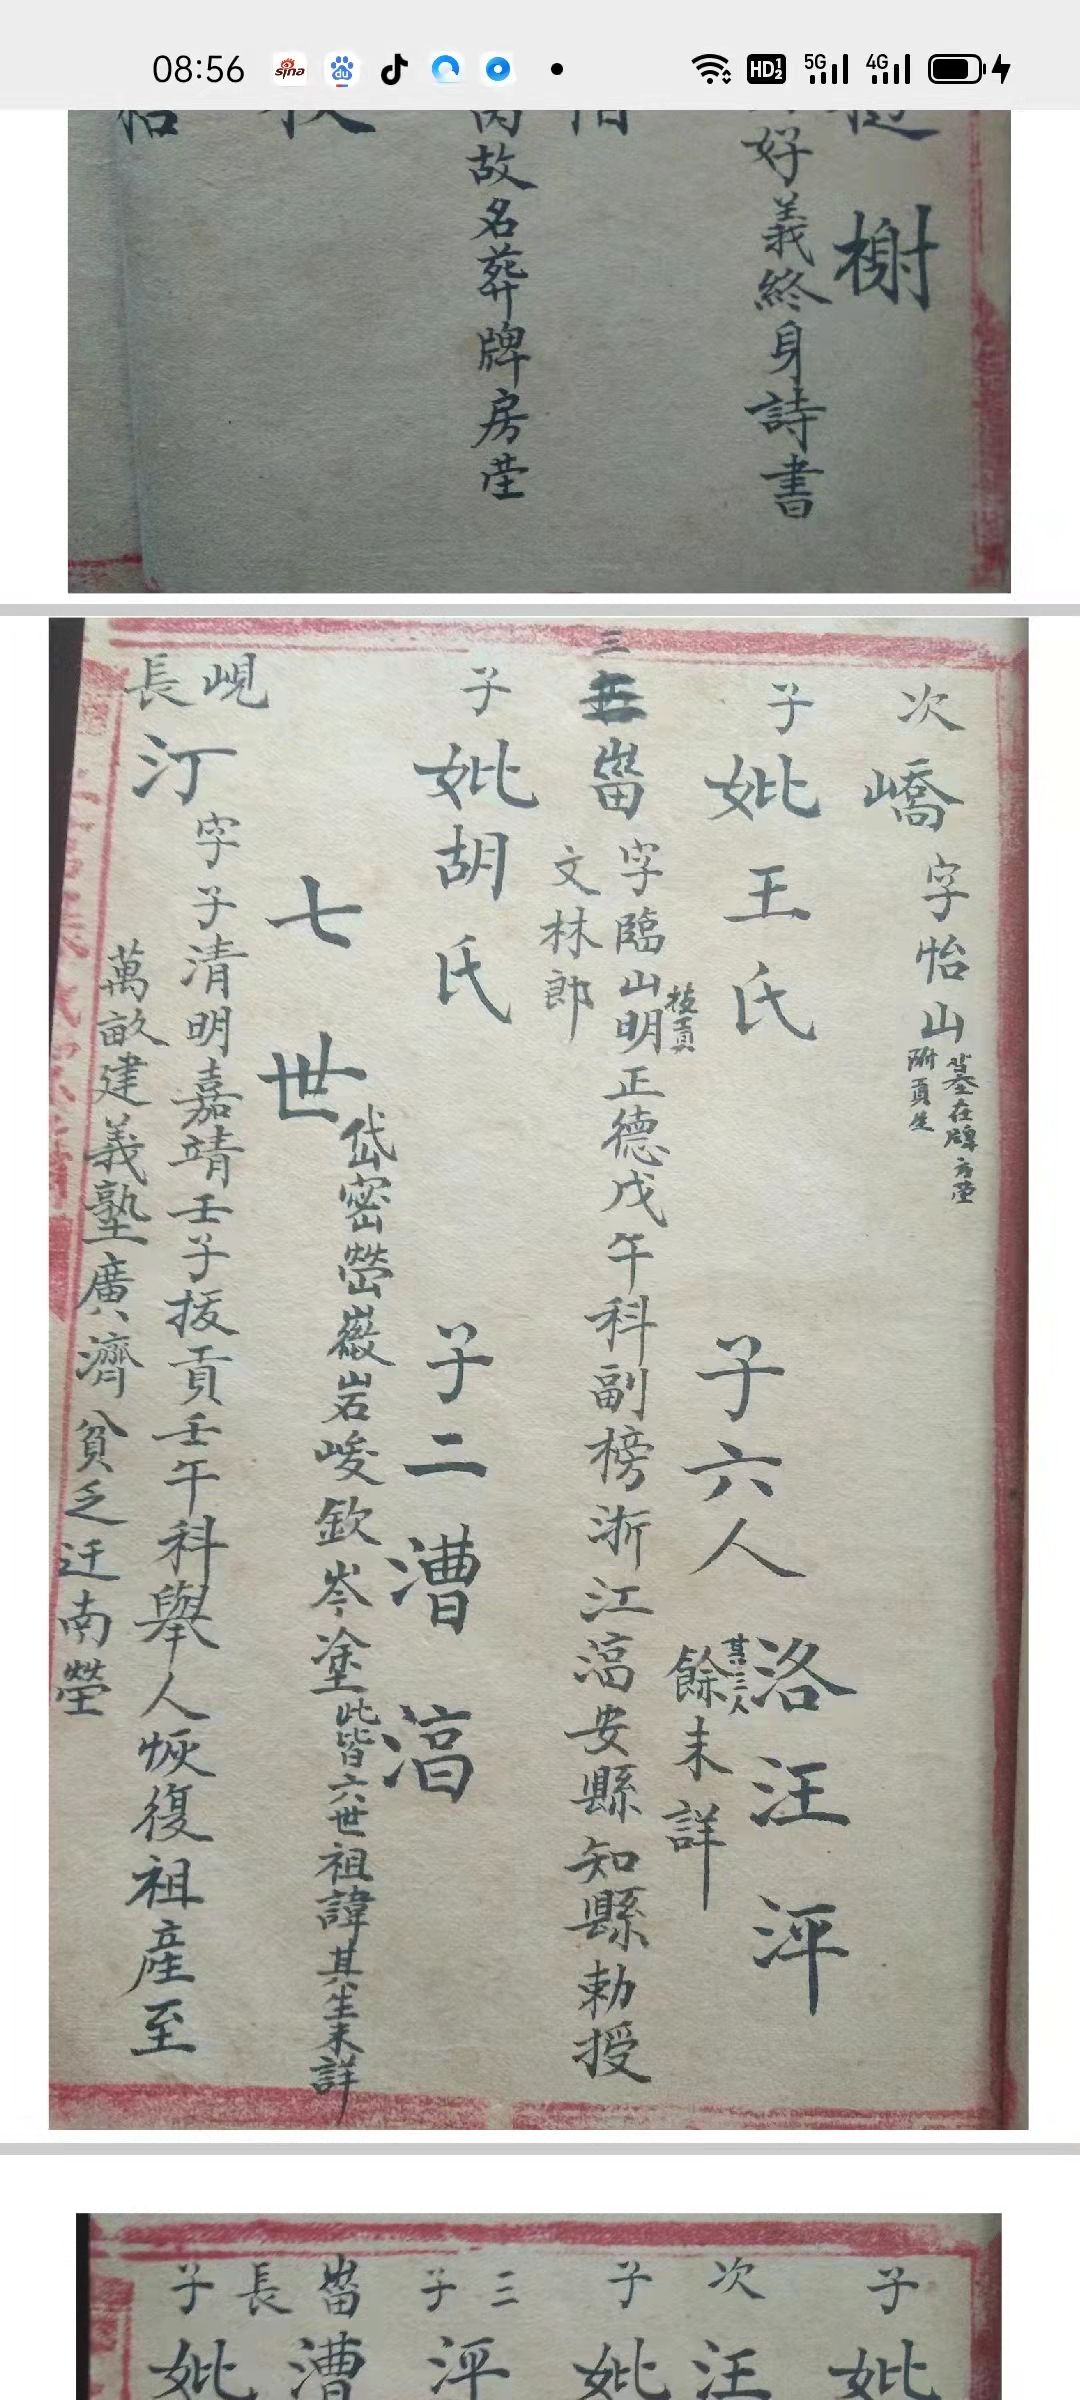 08:56
sina
du
HD
5G
4G
榭
好義終身詩書
故名葬牌房茔
次
嶠
字怡山
墓在牌方茔
附貢生
子
妣王氏
子六人
洛汪泙
其三人
餘未詳
三
畨
字臨山明正德戊午科副榜浙江滈安縣知縣勅授
拔貢
文林郎
子
妣胡氏
子二
漕滈
七世
岱密嶜巌岩峻欽岑塗此皆六世祖諱其生未詳
峴
長
汀
字子清明嘉靖壬子拔貢壬午科舉人恢復祖產至
萬畝建義塾廣濟貧乏迁南塋
子
妣
次
汪
子
妣
三
泙
子
畨
漕
長
子
妣